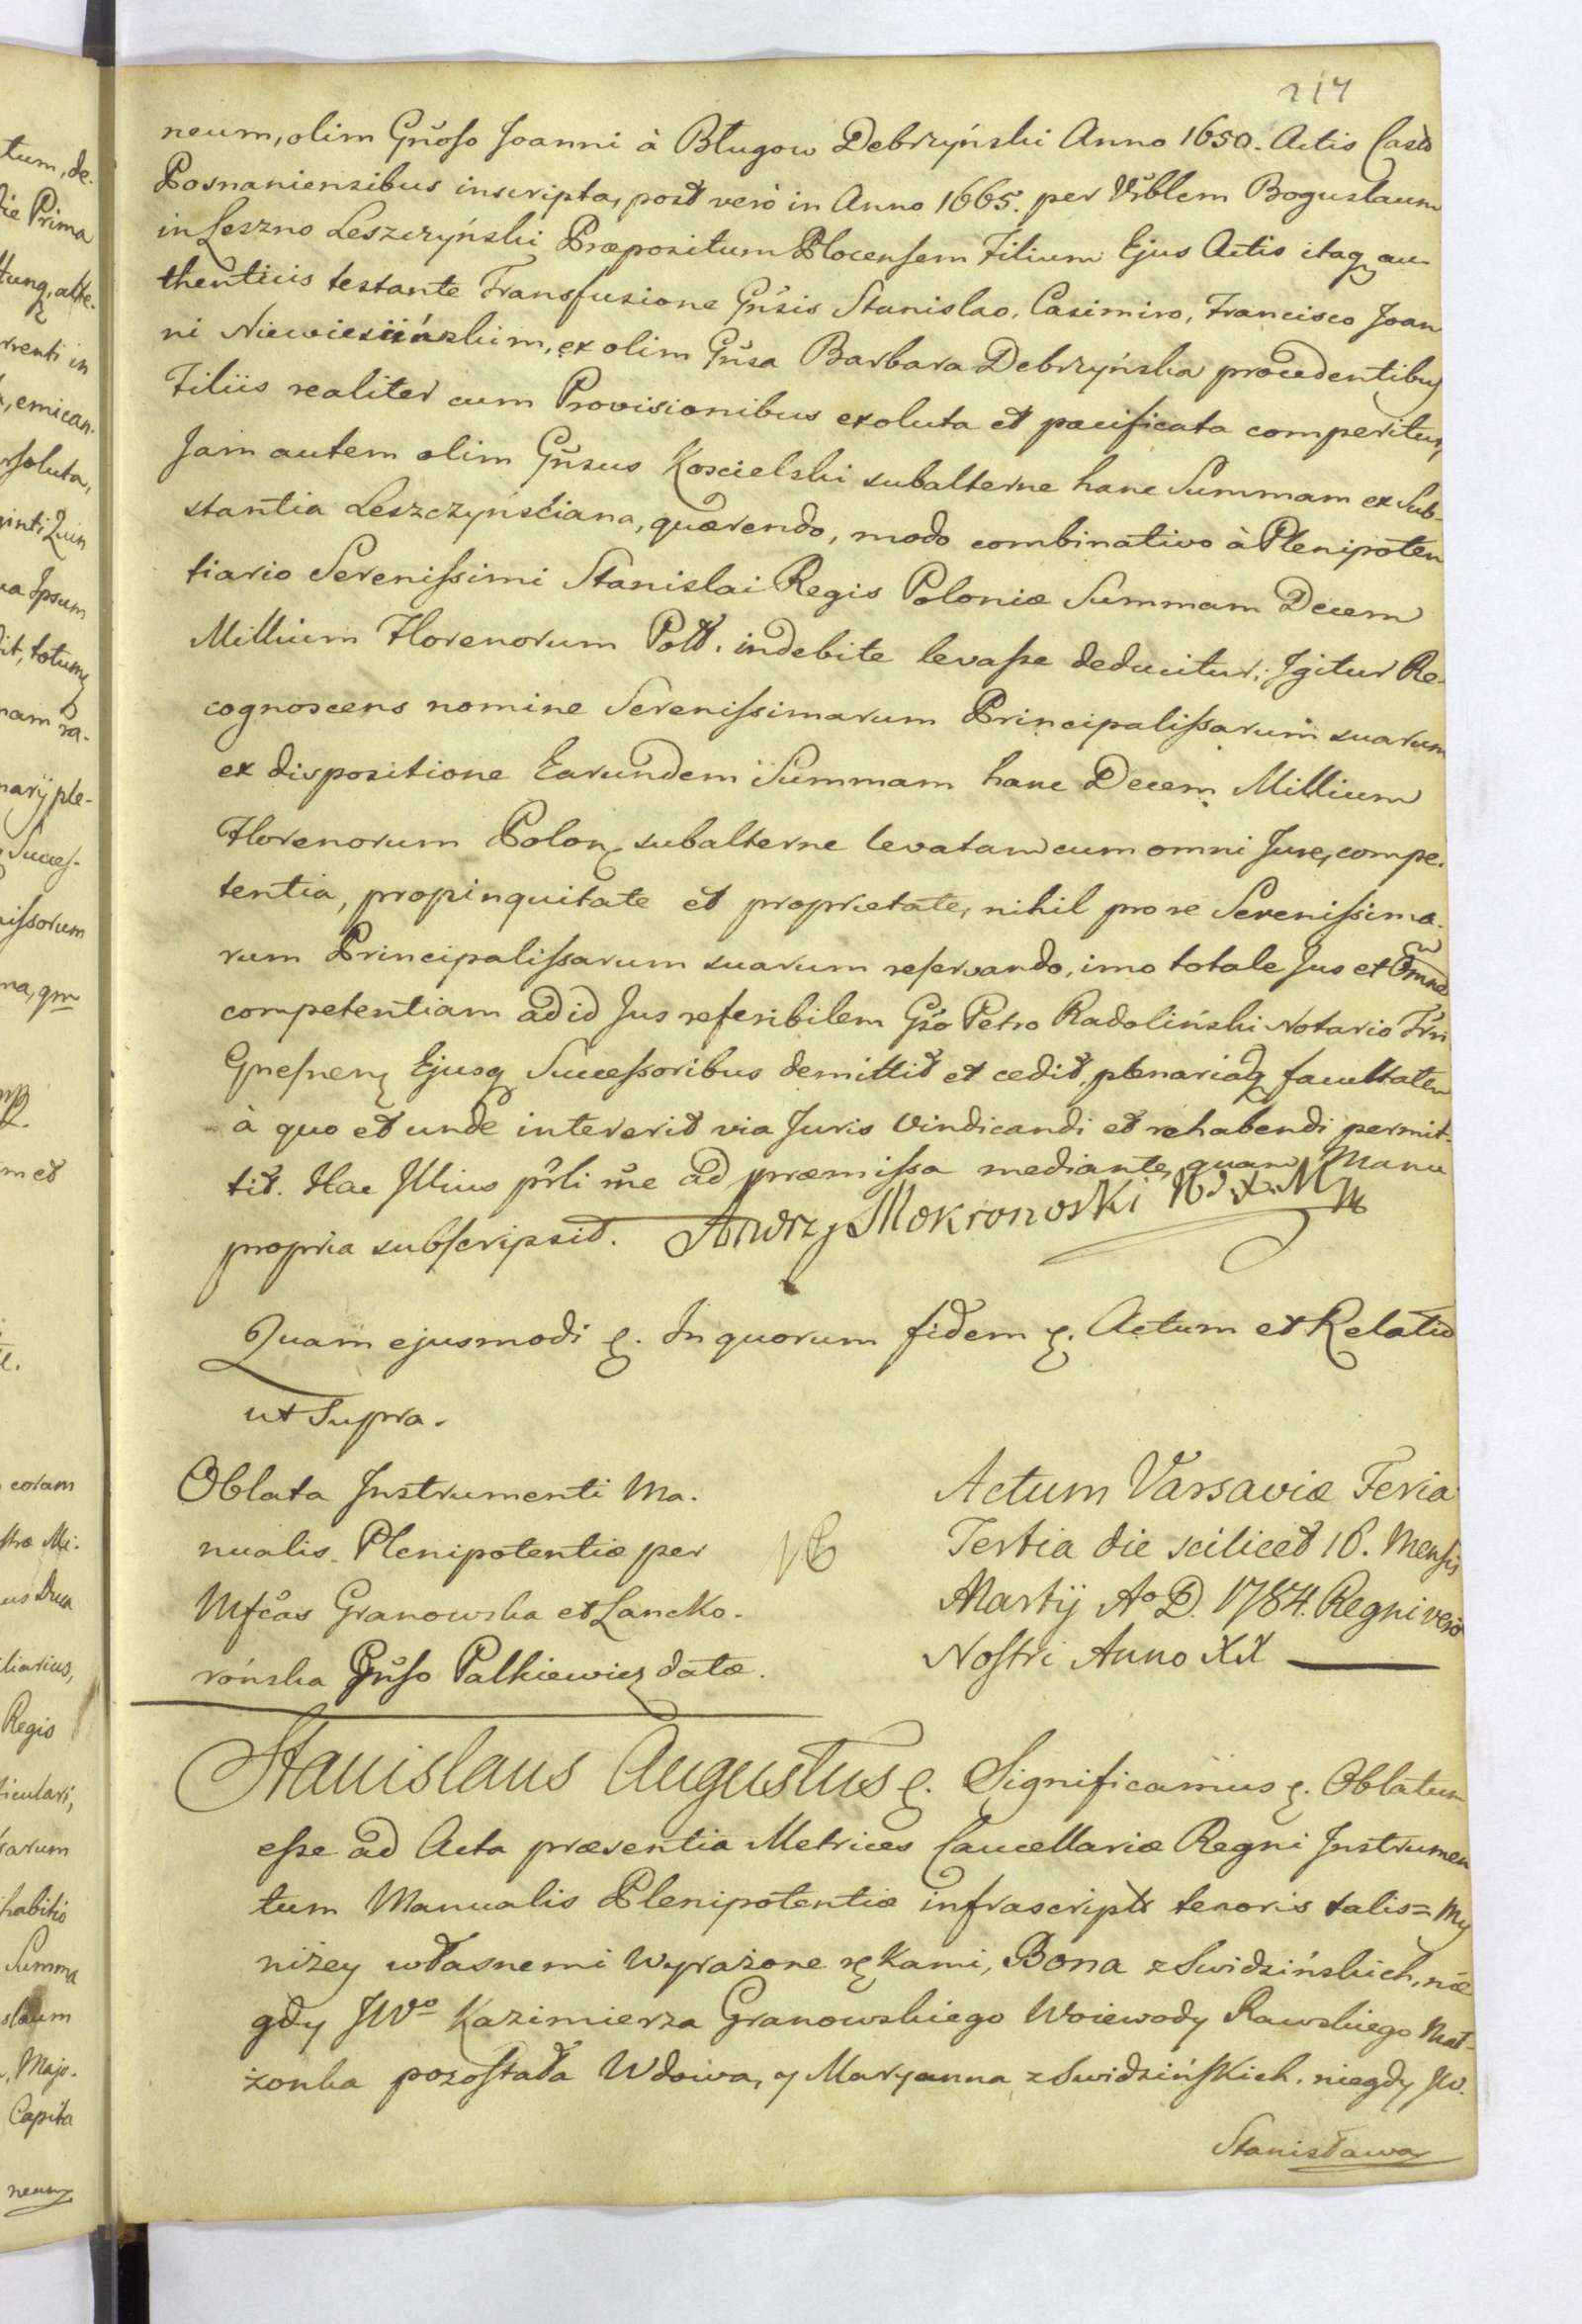 217
neum, olim Gn̄oso Joanni à Bługow Debrzyński Anno 1650. Actis Cast̄
Posnaniensibus inscripta, post verò in Anno 1665. per Vr̄blem Boguslaum
in Leszno Leszczyński Præpositum Plocensem Filium Ejus Actis itaq au-
thenticis testante Transfusione Gn̄sis Stanislao, Casimiro, Francisco Joan
ni Niewiesiińskim, ex olim Gn̄sa Barbara Debrzyńska procedentibus
Filiis realiter cum Provisionibus exoluta et pacificata comperitur,
Jam autem olim Gn̄sus Koscielski subalterne hanc Summam ex Sub-
stantia Leszczyńsciana, quærendo, modo combinativo à Plenipoten
tiario Serenissimi Stanislai Regis Poloniæ Summam Decem
Millium Florenorum Poll. indebite levasse deducitur; Igitur Re-
cognoscens nomine Serenissimarum Principalissarum suarum
ex dispositione Earundem Summam hanc Decem Millium
Florenorum Polon, subalterne levatam cum omni Jure, compe-
tentia, propinquitate et proprietate, nihil pro se Serenissima-
rum Principalissarum suarum reservando, imo totale Jus et Om̄ne
competentiam ad id Jus referibilem Gs̄o Petro Radoliński Notario Tr̄ri
Gnesnen, Ejusq Successoribus demittit et cedit, plenariaq facultatem
à quo et unde intererit via Juris vindicandi et rehabendi permit-
tit. Hac Illius pr̄li m̄e ad præmissa mediante, quam Manu
propria subscripsit. Andrzy Mokronoski W. X. M
Quam ejusmodi &. In quorum fidem &. Actum et Relatio
ut Supra.
Oblata Instrumenti Ma-
nualis Plenipotentiæ per
Mfc̄as Granowska et Lancko-
rońska Gn̄so Palkiewicz datæ.
Actum Varsaviæ Feria
Tertia die scilicet 16. Mensis
Martij Ao D. 1784. Regni vero
Nostri Anno XX
Stanislaus Augustus &. Significamus &. Oblatum
esse ad Acta præsentia Metrices Cancellariæ Regni Instrumen
tum Manualis Plenipotentiæ infrascripti tenoris talis = My
niżey własnemi wyrażone rękami, Bona z Swidzińskich, nie
gdy JWo Kazimierza Granowskiego Woiewody Rawskiego Mał-
żonka pozostała Wdowa, y Maryanna z Swidzińskich, niegdy JW.
Stanisława